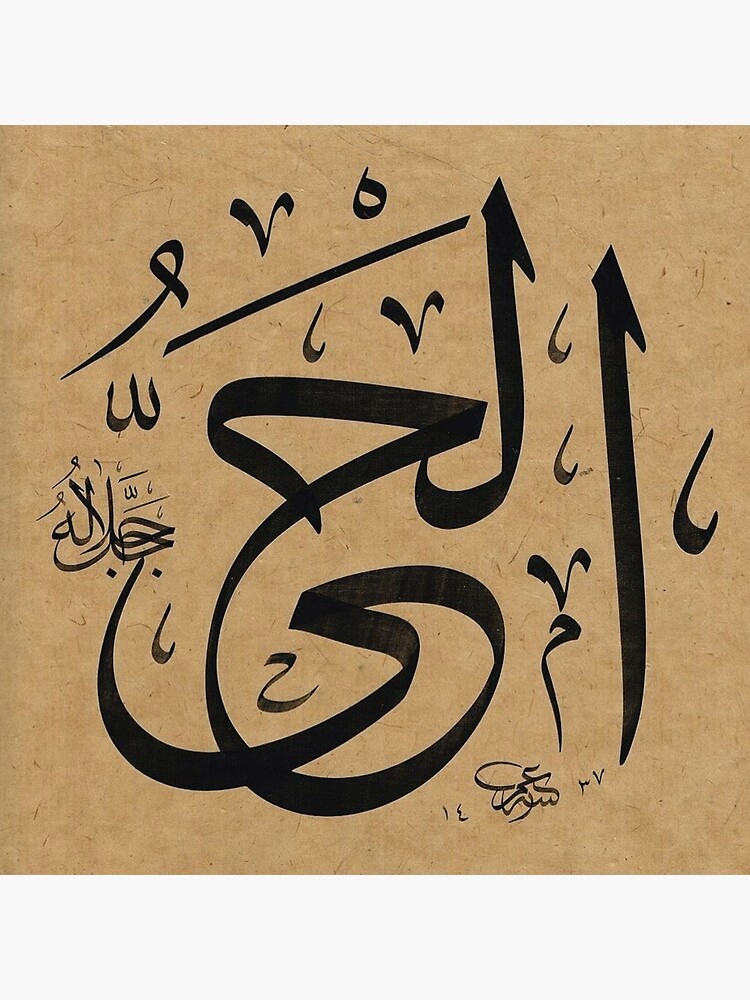 الحي
جَلَّ جَلَالُهُ
١٤ ٣٧